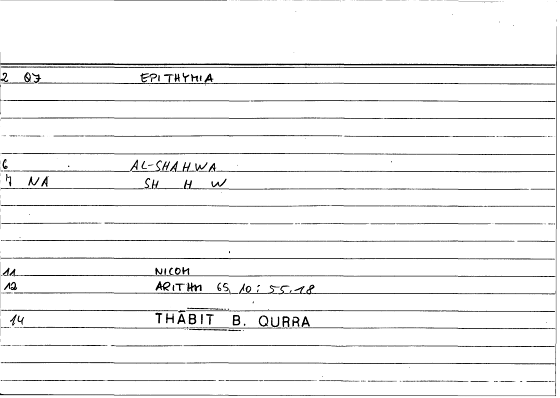 2 07 EPITHYMIA
6 AL-SHAHWA
7 NA SH H W
11 NICOM
12 ARITHM 65, 10 : 55.18
14 THĀBIT B. QURRA